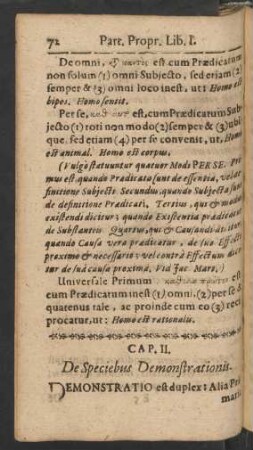 72 Part. Propr. Lib. I.
De omni, est cum Prædicatum
non solum (1) omni Subjecto, sed etiam (2)
semper & (3) omni loco inest, ut: Homo est
bipes. Homo sentit.
Per se, est, cum Prædicatum Sub-
jecto (1) toti non modo (2) semper & (3) ubi-
que, sed etiam (4) per se convenit, ut, Homo
est animal. Homo est corpus.
(Vulgò statuuntur quatuor Modi PER SE. Pri-
mus est, quando Prædicata sunt de essentia, vel de-
finitione Subjecti. Secundus, quando Subjecta sunt
de definitione Prædicati. Tertius, qui & modus
existendi dicitur, quando Existentia prædicatur
de Substantiis. Quartus, qui & Causandi dicitur,
quando Causa vera prædicatur, de suo Effectu
proximo & necessario: vel contrà Effectum dici-
tur de suâ causâ proximâ. Vid Jac. Mart.)
Universale Primum est
cum Prædicatum inest (1) omni, (2) per se &
quatenus tale, ac proinde cum eo (3) reci-
procatur, ut: Homo est rationalis.
CAP. II.
De Speciebus Demonstrationis.
DEMONSTRATIO est duplex: Alia Pri-
maria